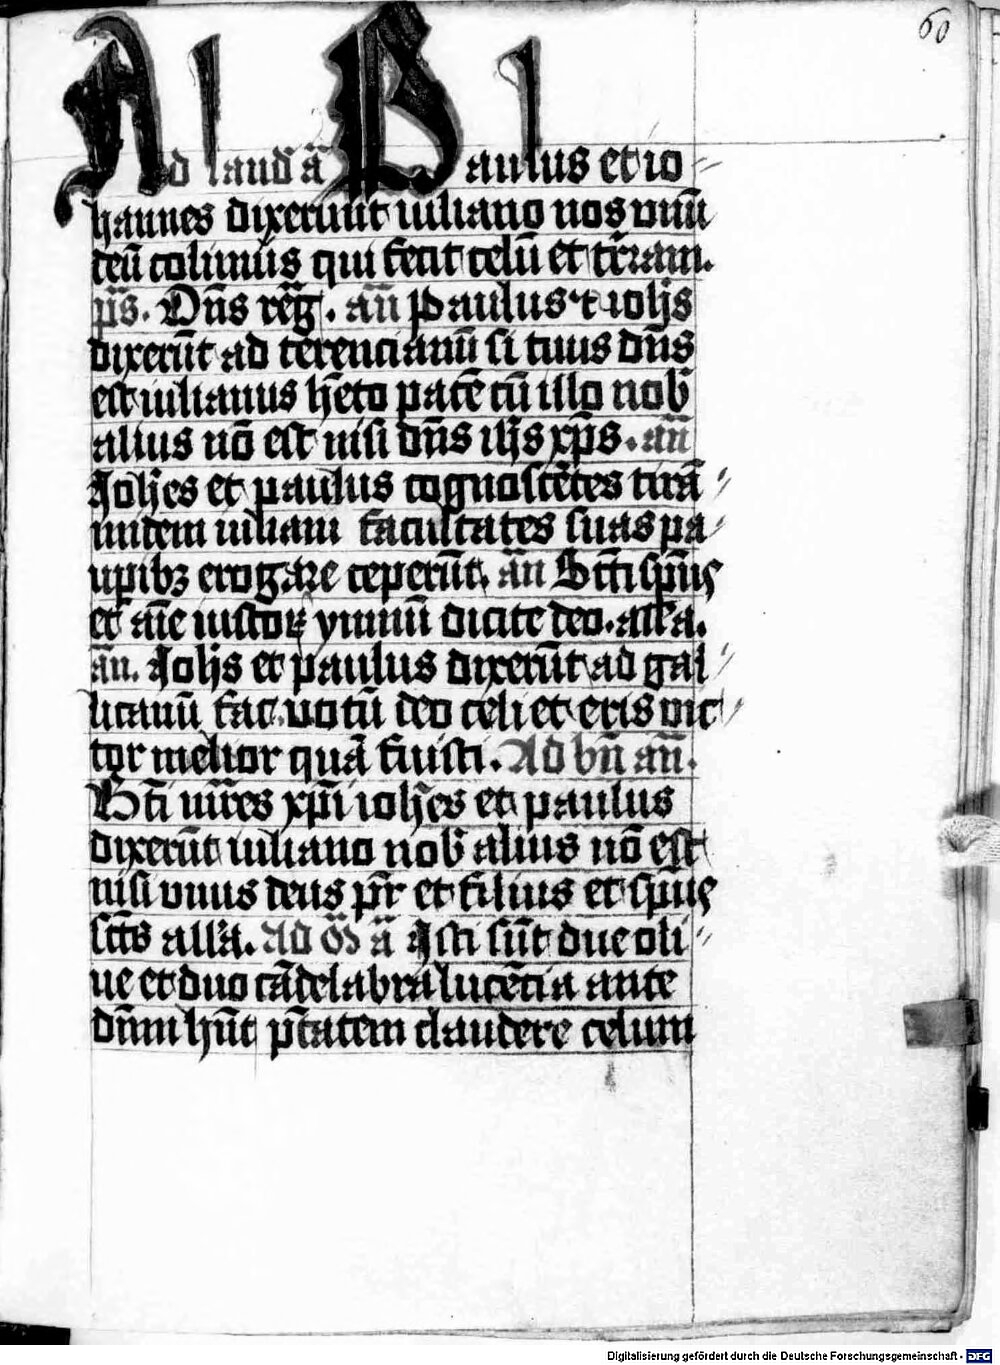 60
Ad laud ā Paulus et io⸗
hannes dixerunt iuliano nos vnū
deū colimus qui fecit celū et terram.
ps. Dn̄s reg̅. an̄ Paulus ⁊ ioh̅s
dixerūt ad terencianū si tuus dn̄s
est iulianus h̅eto pacē cū illo nob̅
alius nō est nisi dn̄s ih̅s xp̅s. an̄
Joh̅es et paulus cognoscētes tirā⸗
nidem iuliani facultates suas pa⸗
upibꝫ erogare ceperūt. an̄ Sc̅ti sp̅us
et aīe iustoꝝ ymnū dicite deo. all̅a.
an̄. Joh̅s et paulus dixerūt ad gal⸗
licanū fac uotū deo celi et eris vic⸗
tor melior quā fuisti. Ad bn̄ an̄.
Sc̅ti mr̅es xp̅i ioh̅es et paulus
dixerūt iuliano nob̅ alius nō est
nisi vnus deus pr̅ et filius et sp̅us
sc̅ts all̅a. Ad ōs ā Isti sūt due oli⸗
ue et duo cādelabra lucētia ante
dn̄m hn̄t ptātem claudere celum
Digitalisierung gefördert durch die Deutsche Forschungsgemeinschaft - DFG